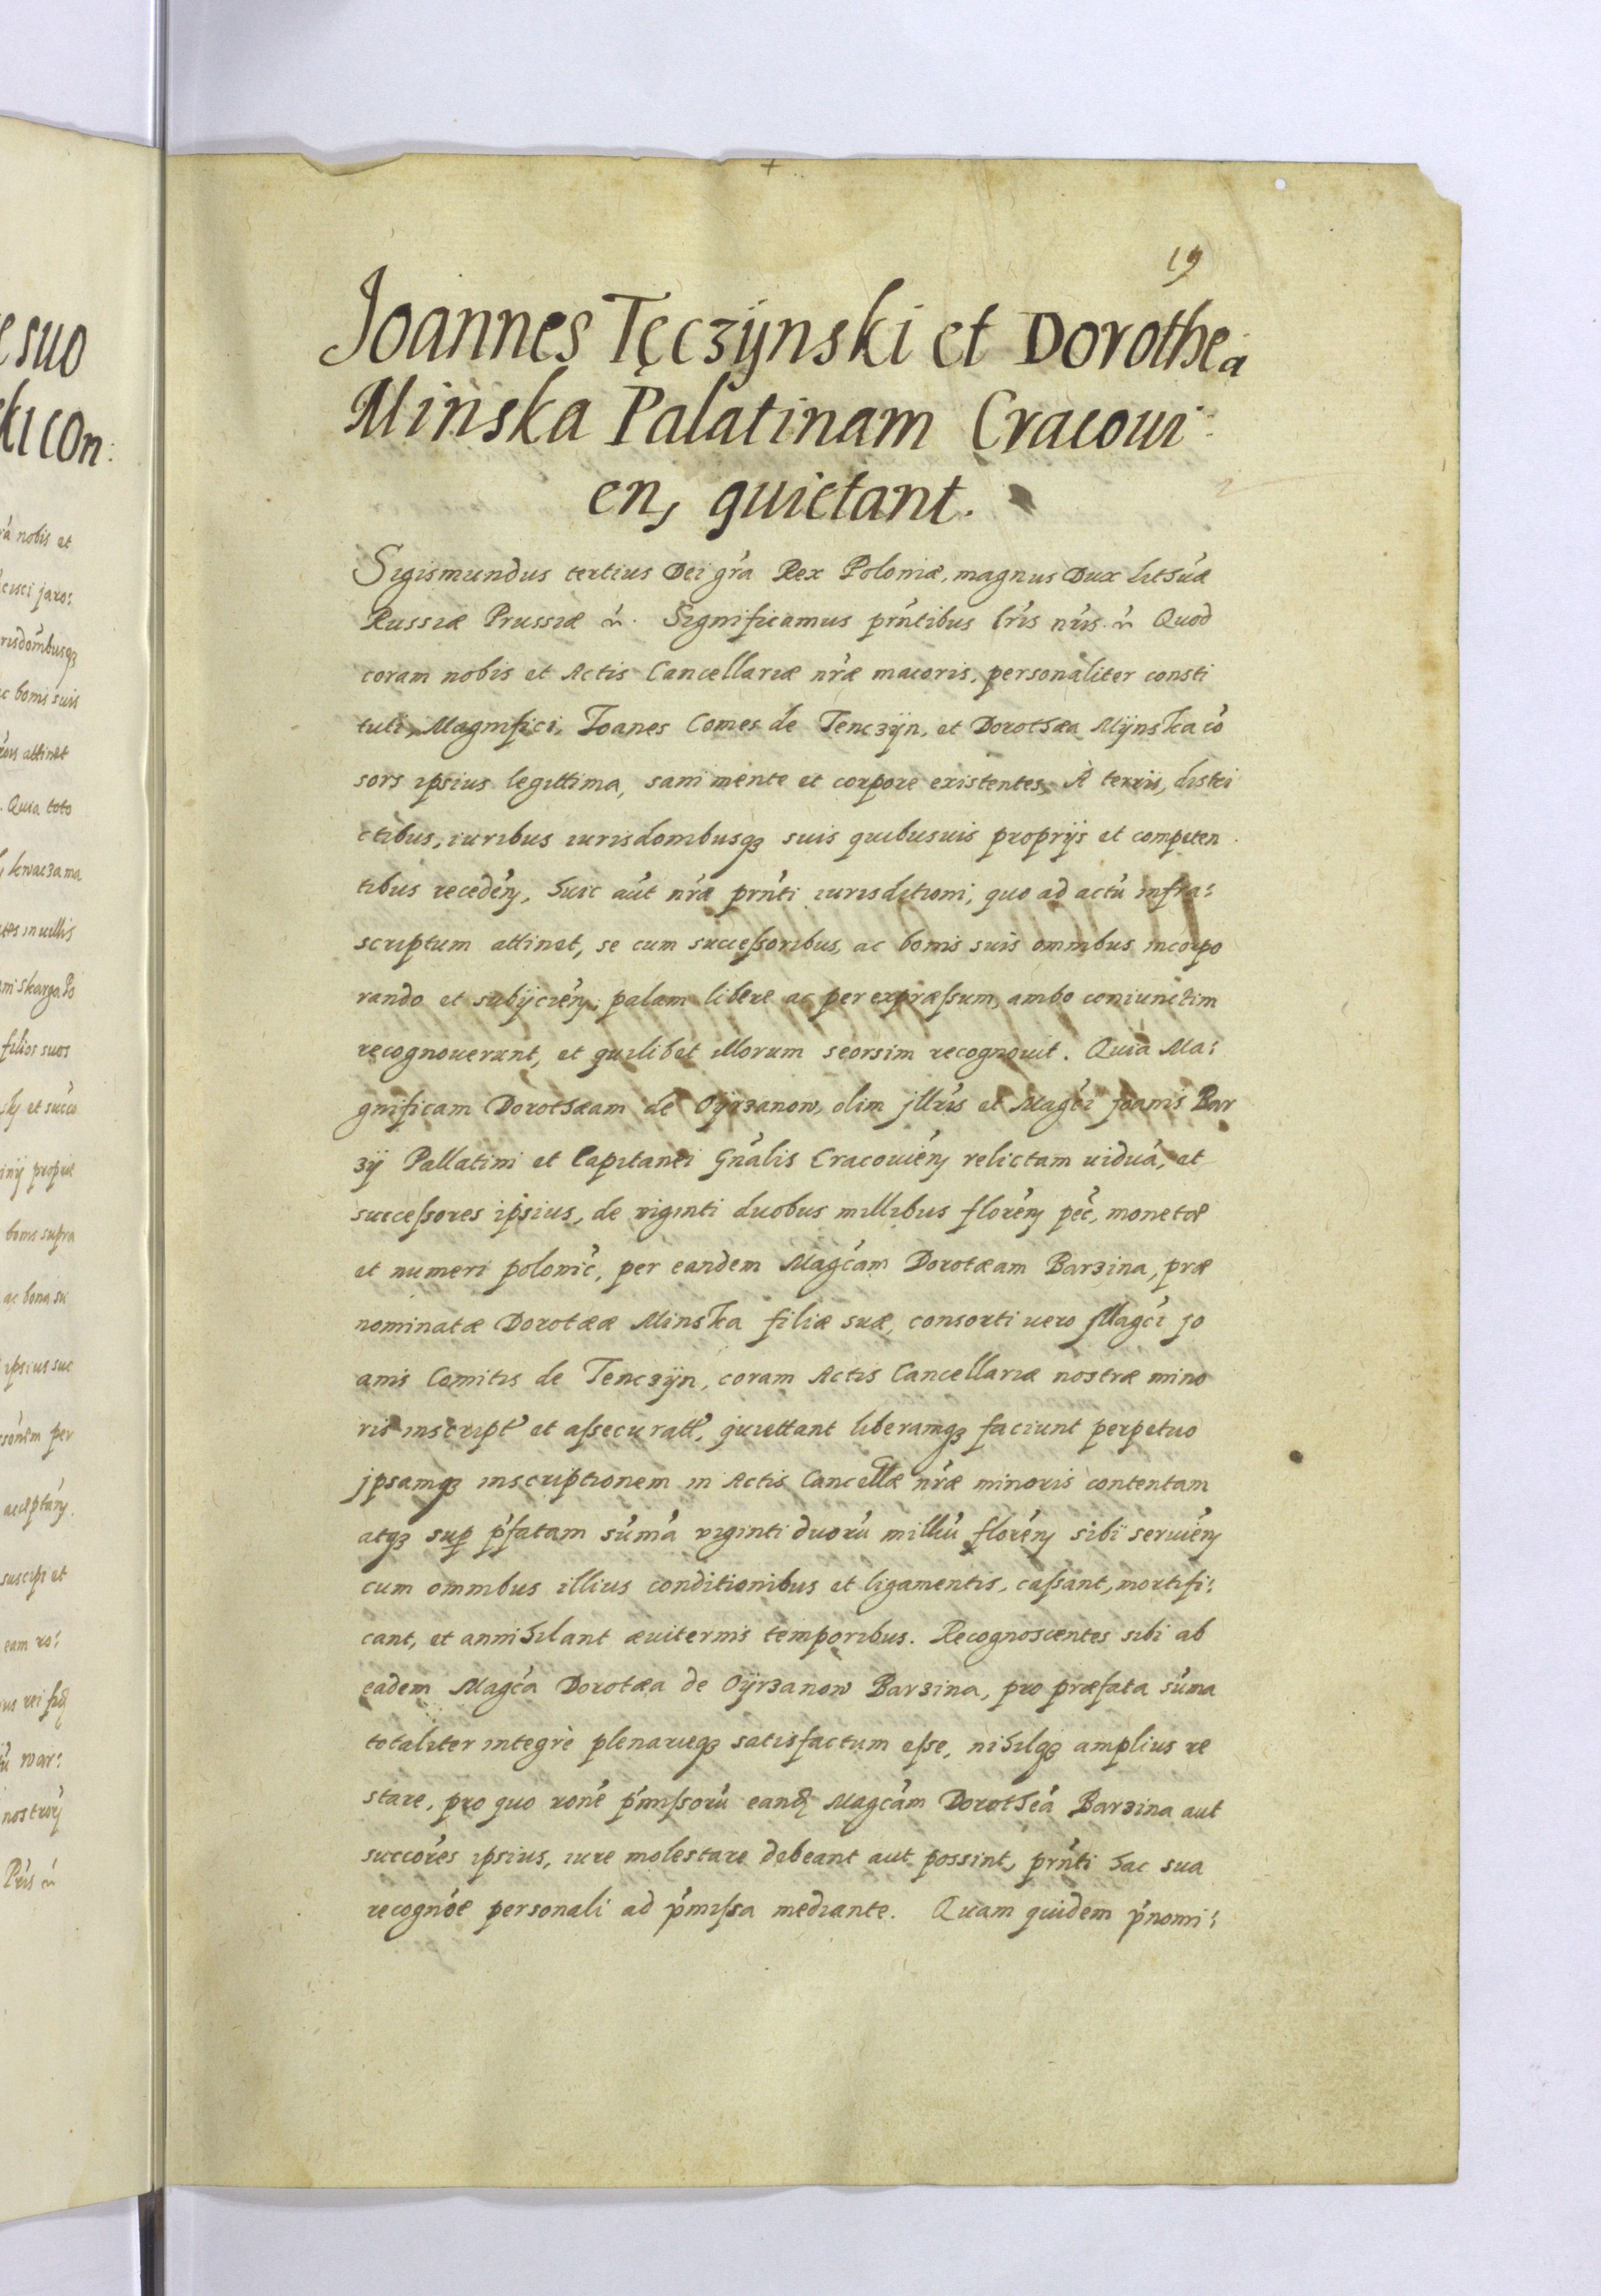 19
Joannes Tęczÿnski et Dorothea
Minska Palatinam Cracoui:
en, quietant.
Sigismundus tertius Dei gr̃a Rex Poloniæ, magnus Dux Lithũæ
Russiæ Prussiæ ꝛ̃. Significamus pr̃ntibus lr̃is nr̃is ꝛ̃ Quod
coram nobis et Actis Cancellariæ nr̃æ maioris, personaliter consti
tuti, Magnifici, Joanes Comes de Tenczÿn, et Dorothæa Mÿnska cõ
sors ipsius legittima, sani mente et corpore existentes, A terris, distri
ctibus, iuribus iurisdombusqꝫ suis quibusuis proprijs et competen
tibus recedeñ, huic aũt nr̃æ pr̃nti iurisditioni, quo ad actũ infra:
scriptum attinet, se cum successoribus, ac bonis suis omnibus incorpo
rando et subijcieñ, palam libere ac per expræssum, ambo coniunctim
recognouerunt, et quilibet illorum seorsim recognouit. Quia Ma:
gnificam Dorothæam de Oÿrzanow, olim jllr̃is et Magc̃i joanis Bar
zÿ Pallatini et Capitanei Gñalis Cracouieñ relictam viduã, et
successores ipsius, de viginti duobus millibus floreñ pec̃, monetæ
et numeri polonic̃, per eandem Magc̃am Dorotæam Barzina, præ
nominatæ Dorotææ Minska filiæ suæ, consorti vero Magc̃i jo
anis Comitis de Tenczÿn, coram Actis Cancellariæ nostræ mino
ris inscript̃ et assecuratt̃, quiettant liberamqꝫ faciunt perpetuo
jpsamqꝫ inscriptionem in Actis Cancellæ nr̃æ minoris contentam
atqꝫ sup p̃fatam sũmã viginti duorũ milliũ floreñ sibi seruieñ
cum omnibus illius conditionibus et ligamentis, cassant, mortifi:
cant, et annihilant æuiternis temporibus. Recognoscentes sibi ab
eadem Magc̃a Dorotæa de Oÿrzanow Barzina, pro præfata sũma
totaliter integrè plenarieqꝫ satisfactum esse, nihilqꝫ amplius re
stare, pro quo rone̛ p̃missorũ eandẽ Magc̃am Dorotheã Barzina aut
succores̃ ipsius, iure molestare debeant aut possint, pr̃nti hac sua
recognõe personali ad p̃missa mediante. Quam quidem p̃nomi: